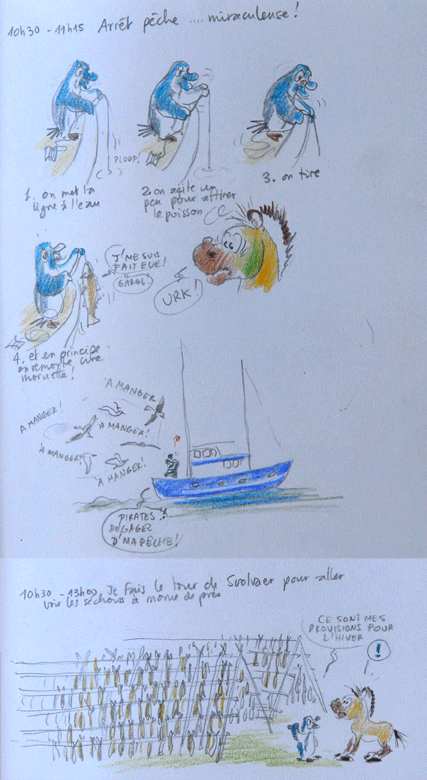 10h30 - 11h15 Arrêt pêche .... miraculeuse!
PLOUF!
1. on met la
ligne à l'eau
2. on agite un
peu pour attirer
le poisson
3. on tire
J'ME SUIS
FAIT EUE!
GARGL!
URK!
4. et en principe
on remonte une
moruette!
A MANGER!
A MANGER!
A MANGER!
A MANGER!
A MANGER!
PIRATES!
DÉGAGEZ
D'MA PÊCHE!
10h30 - 13h00 Je fais le tour de Svolvaer pour aller
voir les séchoirs à morue de près
CE SONT MES
PROVISIONS POUR
L'HIVER
!